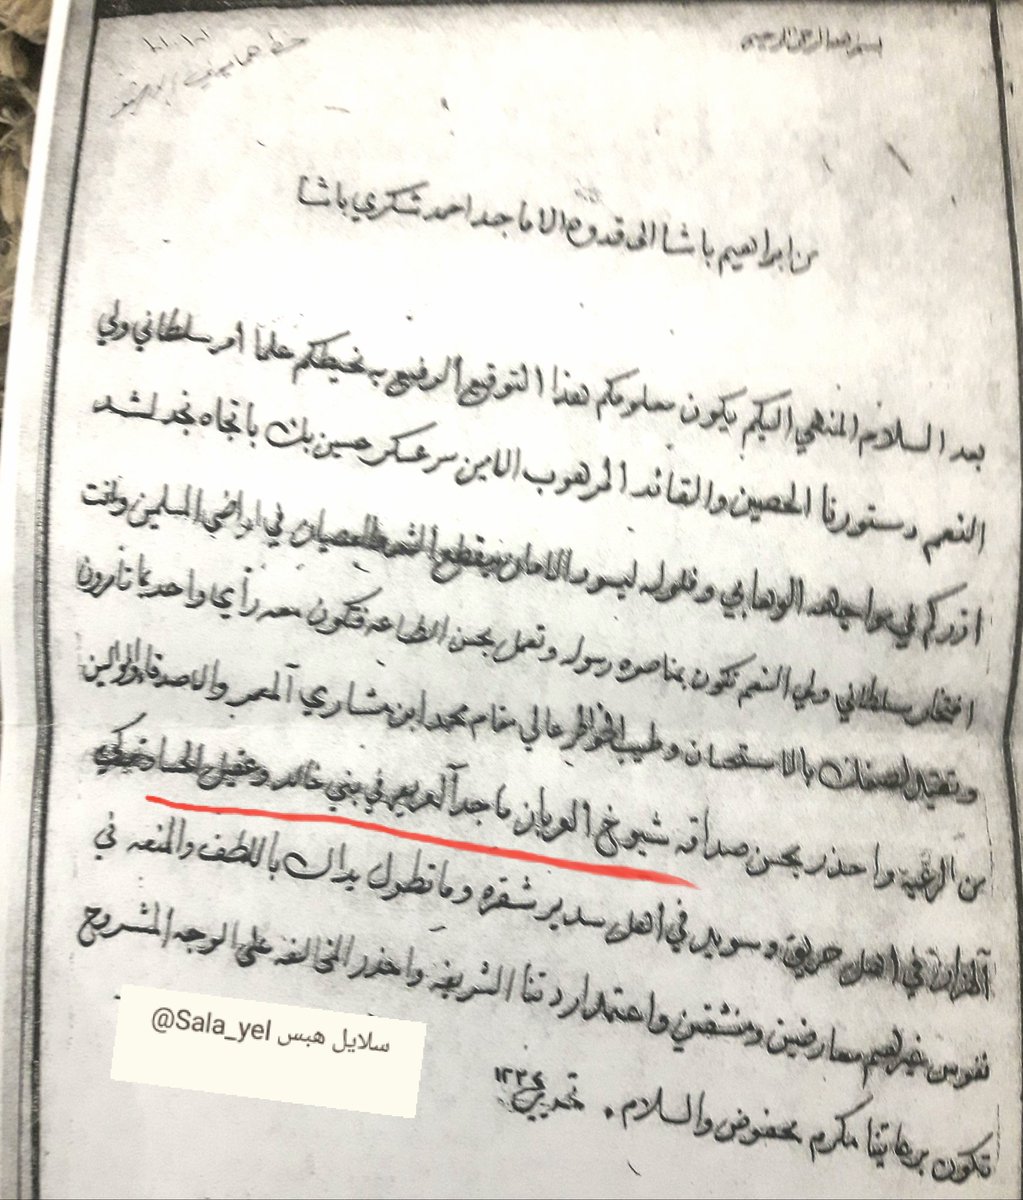 بسم الله الرحمن الرحيم
من ابراهيم باشا الى قدوة الاماجد احمد شكري باشا
بعد السلام المنهي اليكم يكون معلومكم هذا التوقيع الرفيع به نحيطكم علما امر سلطاني ولي
النعم دستورنا الحصين والقائد المرهوب الامين سر عسكر حسين بك باتجاه نجد لشد
ازركم في مواجهه الوهابي وفلوله ليسود الامان ويقطع العصيان في اراضي المسلمين وانت
افتخار سلطاني ولي النعم تكون بمناصره رسوله وتعمل بحسن الطاعه فتكون معه رأيا واحد
بالاستحسان وطيب الخواطر عالي مقام محمد ابن مشاري آل معمر والاصدقاء والموالين
من الرعية واحذر بحسن صداقه شيوخ العربان ماجد آل عريعر في بني خالد وعقيل
في اهل حريق وسويد في أهل سدير شقره وما تطول يداك باللطف والمنعه في
نفوس غيرهم معارضين ومنشقين واعتمد ارادتنا الشريفه واحذر المخالفه على الوجه المشروح
تكون برعايتنا مكرم محفوض والسلام . تحرير ١٢٣٤
سلايل هبس @Sala_yel